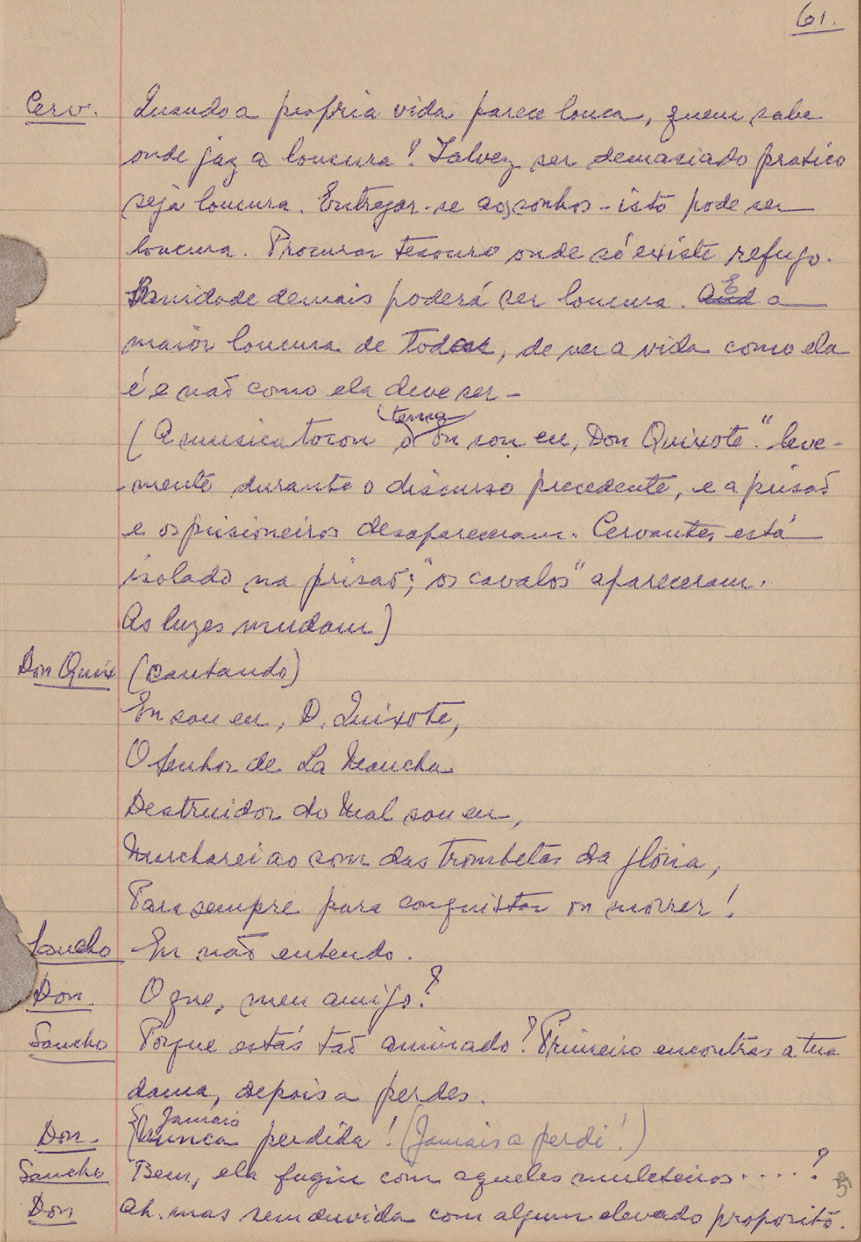 61.
Cerv. Quando a propria vida parece louca, quem sabe
onde jaz a loucura? Talvez ser demasiado pratico
seja loucura. Entregar-se aos sonhos - isto pode ser
loucura. Procurar tesouro onde só existe refugo.
Sanidade demais poderá ser loucura. And E a
maior loucura de todas, de ver a vida como ela
é e não como ela deve ser -
(A musica tocou o tema "Eu sou eu, Don Quixote." leve-
mente durante o discurso precedente, e a prisão
e os prisioneiros desapareceram. Cervantes está
isolado na prisão; "os cavalos" apareceram.
As luzes mudam)
Don Quix (cantando)
Eu sou eu, D. Quixote,
O Senhor de La Mancha
Destruidor do Mal sou eu,
Marcharei ao som das trombetas da glória,
Para sempre para conquistar ou morrer!
Sancho Eu não entendo.
Don. O que, meu amigo?
Sancho Porque estás tão animado? Primeiro encontras a tua
dama, depois a perdes.
Don. Jamais nunca perdida! (Jamais a perdi!)
Sancho Bem, ela fugiu com aqueles muleteiros....?
Don Ah. mas sem duvida com algum elevado proposito.